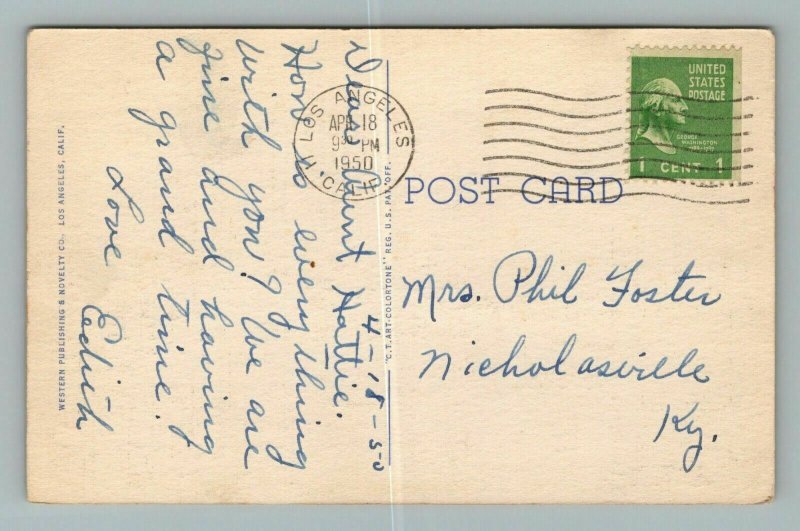 UNITED
STATES
POSTAGE
GEORGE
WASHINGTON
1 CENT 1
LOS ANGELES
APR 18
9 PM
1950
CALIF.
POST CARD
4-18-50
Dear Aunt Hattie.
How is everything
with you? We are
fine and having
a grand time!
Love Edith
Mrs. Phil Foster
Nicholasville
Ky.
"C.T. ART-COLORTONE" REG. U.S. PAT. OFF.
WESTERN PUBLISHING & NOVELTY CO., LOS ANGELES, CALIF.